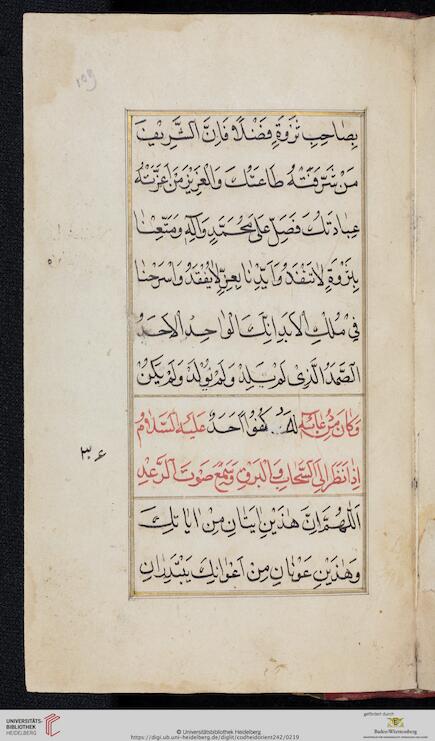 بِصَاحِبِ ثَرْوَةٍ فَضْلًا فَاِنَّ الشَّرِيْفَ
مَنْ شَرَّفَتْهُ طَاعَتُكَ وَالْعَزِيْزَ مَنْ اَعَزَّتْهُ
عِبَادَتُكَ فَصَلِّ عَلٰى مُحَمَّدٍ وَآلِهِ وَمَتِّعْنَا
بِثَرْوَةٍ لَاتَنْفَدُ وَاَيِّدْنَا بِعِزٍّ لَايُفْقَدُ وَاسْرَحْنَا
فِيْ مُلْكِ الْاَبَدِ اِنَّكَ الْوَاحِدُ الْاَحَدُ
الصَّمَدُ الَّذِيْ لَمْ يَلِدْ وَلَمْ يُوْلَدْ وَلَمْ يَكُنْ
لَهُ كُفُوًا اَحَدٌ وَكَانَ مِنْ دُعَائِهِ عَلَيْهِ السَّلَامُ
اِذَا نَظَرَ اِلَى السَّحَابِ وَالْبَرْقِ وَسَمِعَ صَوْتَ الرَّعْدِ
اَللّٰهُمَّ اِنَّ هٰذَيْنِ اٰيَتَانِ مِنْ اٰيَاتِكَ
وَهٰذَيْنِ عَوْنَانِ مِنْ اَعْوَانِكَ يَبْتَدِرَانِ
UNIVERSITÄTS-
BIBLIOTHEK
HEIDELBERG
© Universitätsbibliothek Heidelberg
https://digi.ub.uni-heidelberg.de/diglit/codheidorient242/0219
gefördert durch
Baden-Württemberg